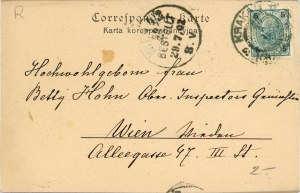 R
Correspondenz-Karte
Karta korespondencyjna
BESTELLT
29.7.02
8.
KRAKAU
Hochwohlgeboren Frau
Betty Hohn Ober. Inspectors
Wien Wieden
Alleegasse 47. III St.
2.-